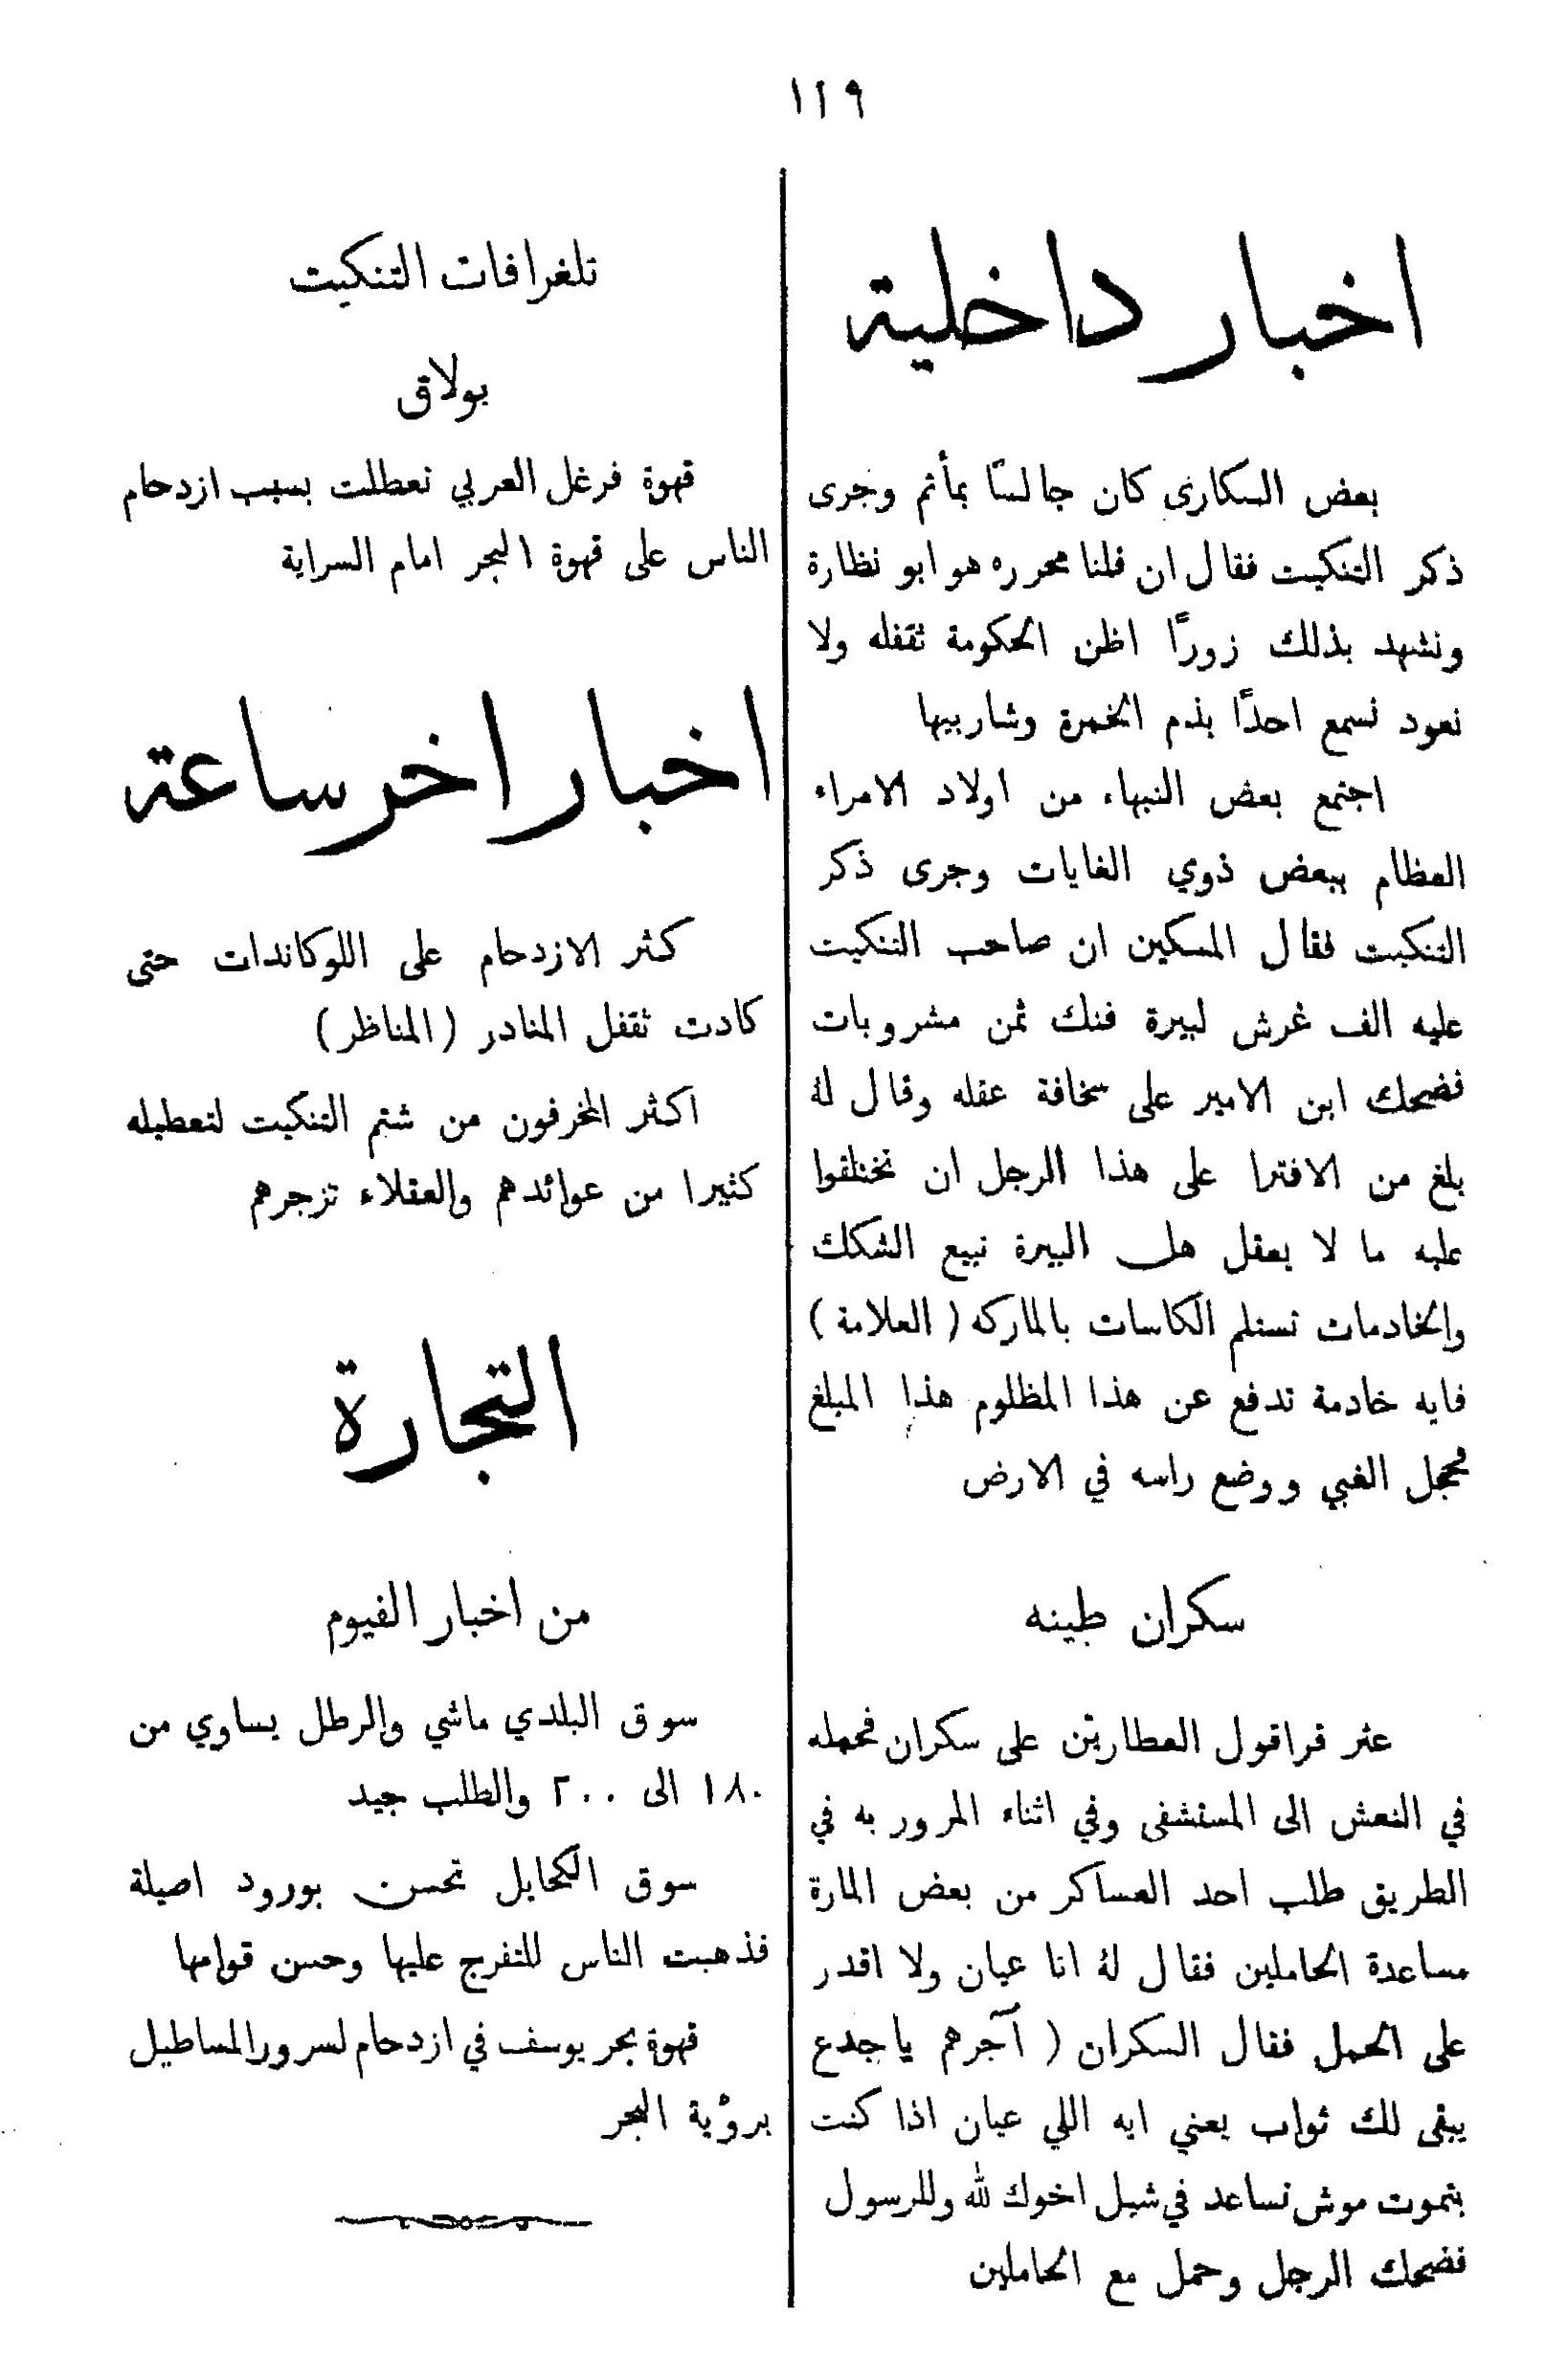 ١٢٩
اخبار داخلية
بعض السكارى كان جالسًا بمأتم وجرى
ذكر التنكيت فقال ان قلنا محرره هو ابو نظارة
ونشهد بذلك زورًا اظن الحكومة تقفله ولا
نعود نسمع احدًا بذم الخمرة وشاربيها
اجتمع بعض النبهاء من اولاد الامراء
العظام ببعض ذوي الغايات وجرى ذكر
التنكيت فقال المسكين ان صاحب التنكيت
عليه الف غرش لبيرة فنك ثمن مشروبات
فضحك ابن الامير على سخافة عقله وقال له
بلغ من الافترا على هذا الرجل ان تختلقوا
عليه ما لا يعقل هل البيرة تبيع الشكك
والخادمات تستلم الكاسات بالماركه ( العلامة )
فايه خادمة تدفع عن هذا المظلوم هذا المبلغ
فخجل الغبي ووضع راسه في الارض
سكران طينه
عثر قراقول العطارين على سكران فحمله
في النعش الى المستشفى وفي اثناء المرور به في
الطريق طلب احد العساكر من بعض المارة
مساعدة الحاملين فقال له انا عيان ولا اقدر
على الحمل فقال السكران ( آجرهم يا جدع
يبقى لك ثواب يعني ايه اللي عيان اذا كنت
بتموت موش تساعد في شيل اخوك لله وللرسول
فضحك الرجل وحمل مع الحاملين
تلغرافات التنكيت
بولاق
قهوة فرغل العربي تعطلت بسبب ازدحام
الناس على قهوة البحر امام السراية
اخبار اخر ساعة
كثر الازدحام على اللوكاندات حتى
كادت تقفل المنادر ( المناظر )
اكثر المخرفون من شتم التنكيت لتعطيله
كثيرا من عوائدهم والعقلاء تزجرهم
التجارة
من اخبار الفيوم
سوق البلدي ماشي والرطل يساوي من
١٨٠ الى ٢٠٠ والطلب جيد
سوق الكحايل تحسن بورود اصيلة
فذهبت الناس للتفرج عليها وحسن قوامها
قهوة بحر يوسف في ازدحام لسرور المساطيل
برؤية البحر